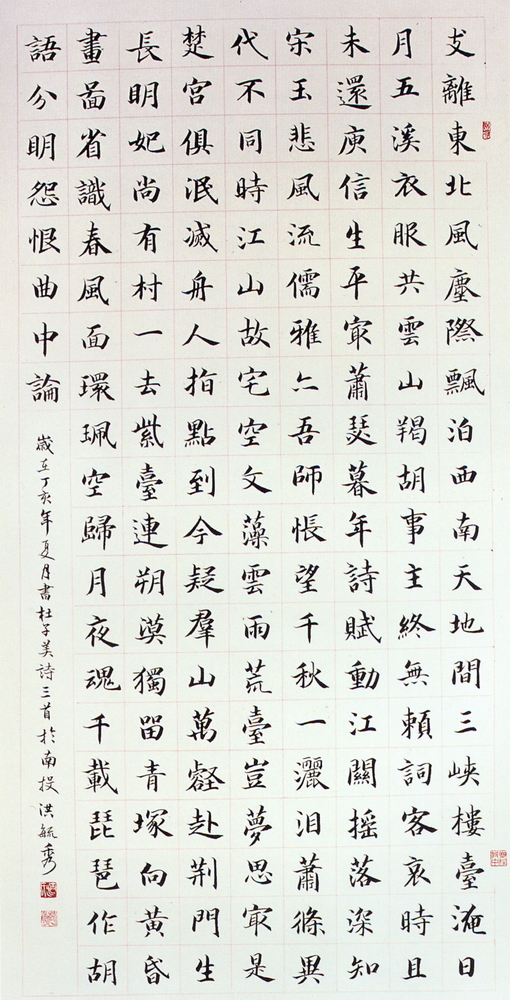 支離東北風塵際飄泊西南天地間三峽樓臺淹日
月五溪衣服共雲山羯胡事主終無賴詞客哀時且
未還庾信生平㝡蕭瑟暮年詩賦動江關搖落深知
宋玉悲風流儒雅亦吾師悵望千秋一灑泪蕭條異
代不同時江山故宅空文藻雲雨荒臺豈夢思㝡是
楚宮俱泯滅舟人指點到今疑羣山萬壑赴荆門生
長明妃尚有村一去紫臺連朔漠獨留青塚向黃昏
畫啚省識春風面環珮空歸月夜魂千載琵琶作胡
語分明怨恨曲中論
歲在丁亥年夏月書杜子美詩三首於南投洪毓秀